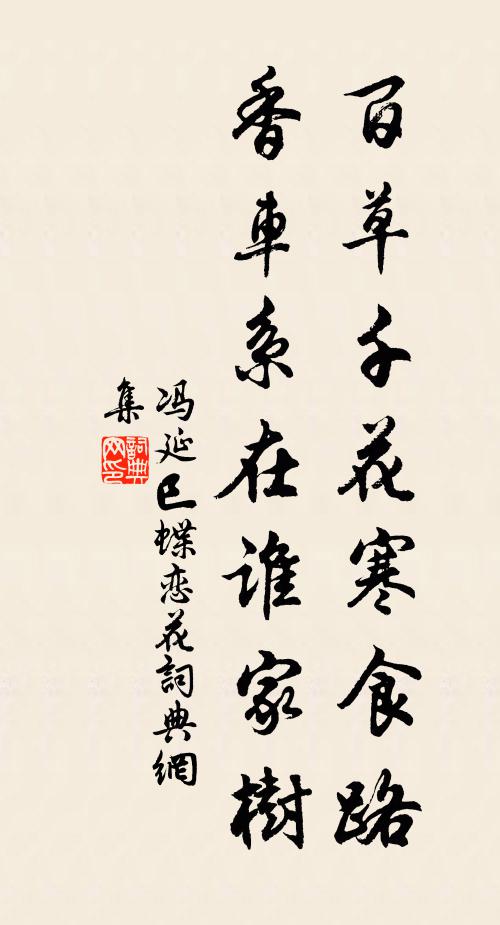 百草千花寒食路
香車系在谁家樹
冯延巳蝶恋花詞典網
集
詞典
网印